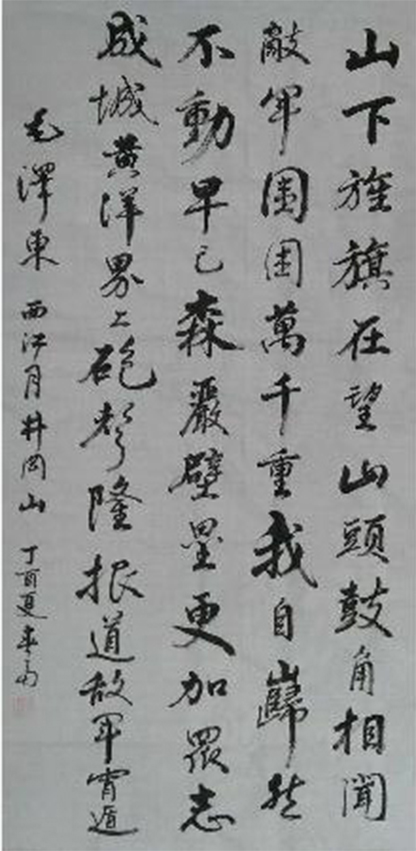 山下旌旗在望山頭鼓角相聞
敵軍圍困萬千重我自巋然
不動早已森嚴壁壘更加眾志
成城黃洋界上砲聲隆报道敌军宵遁
毛澤東 西江月井岡山 丁酉夏